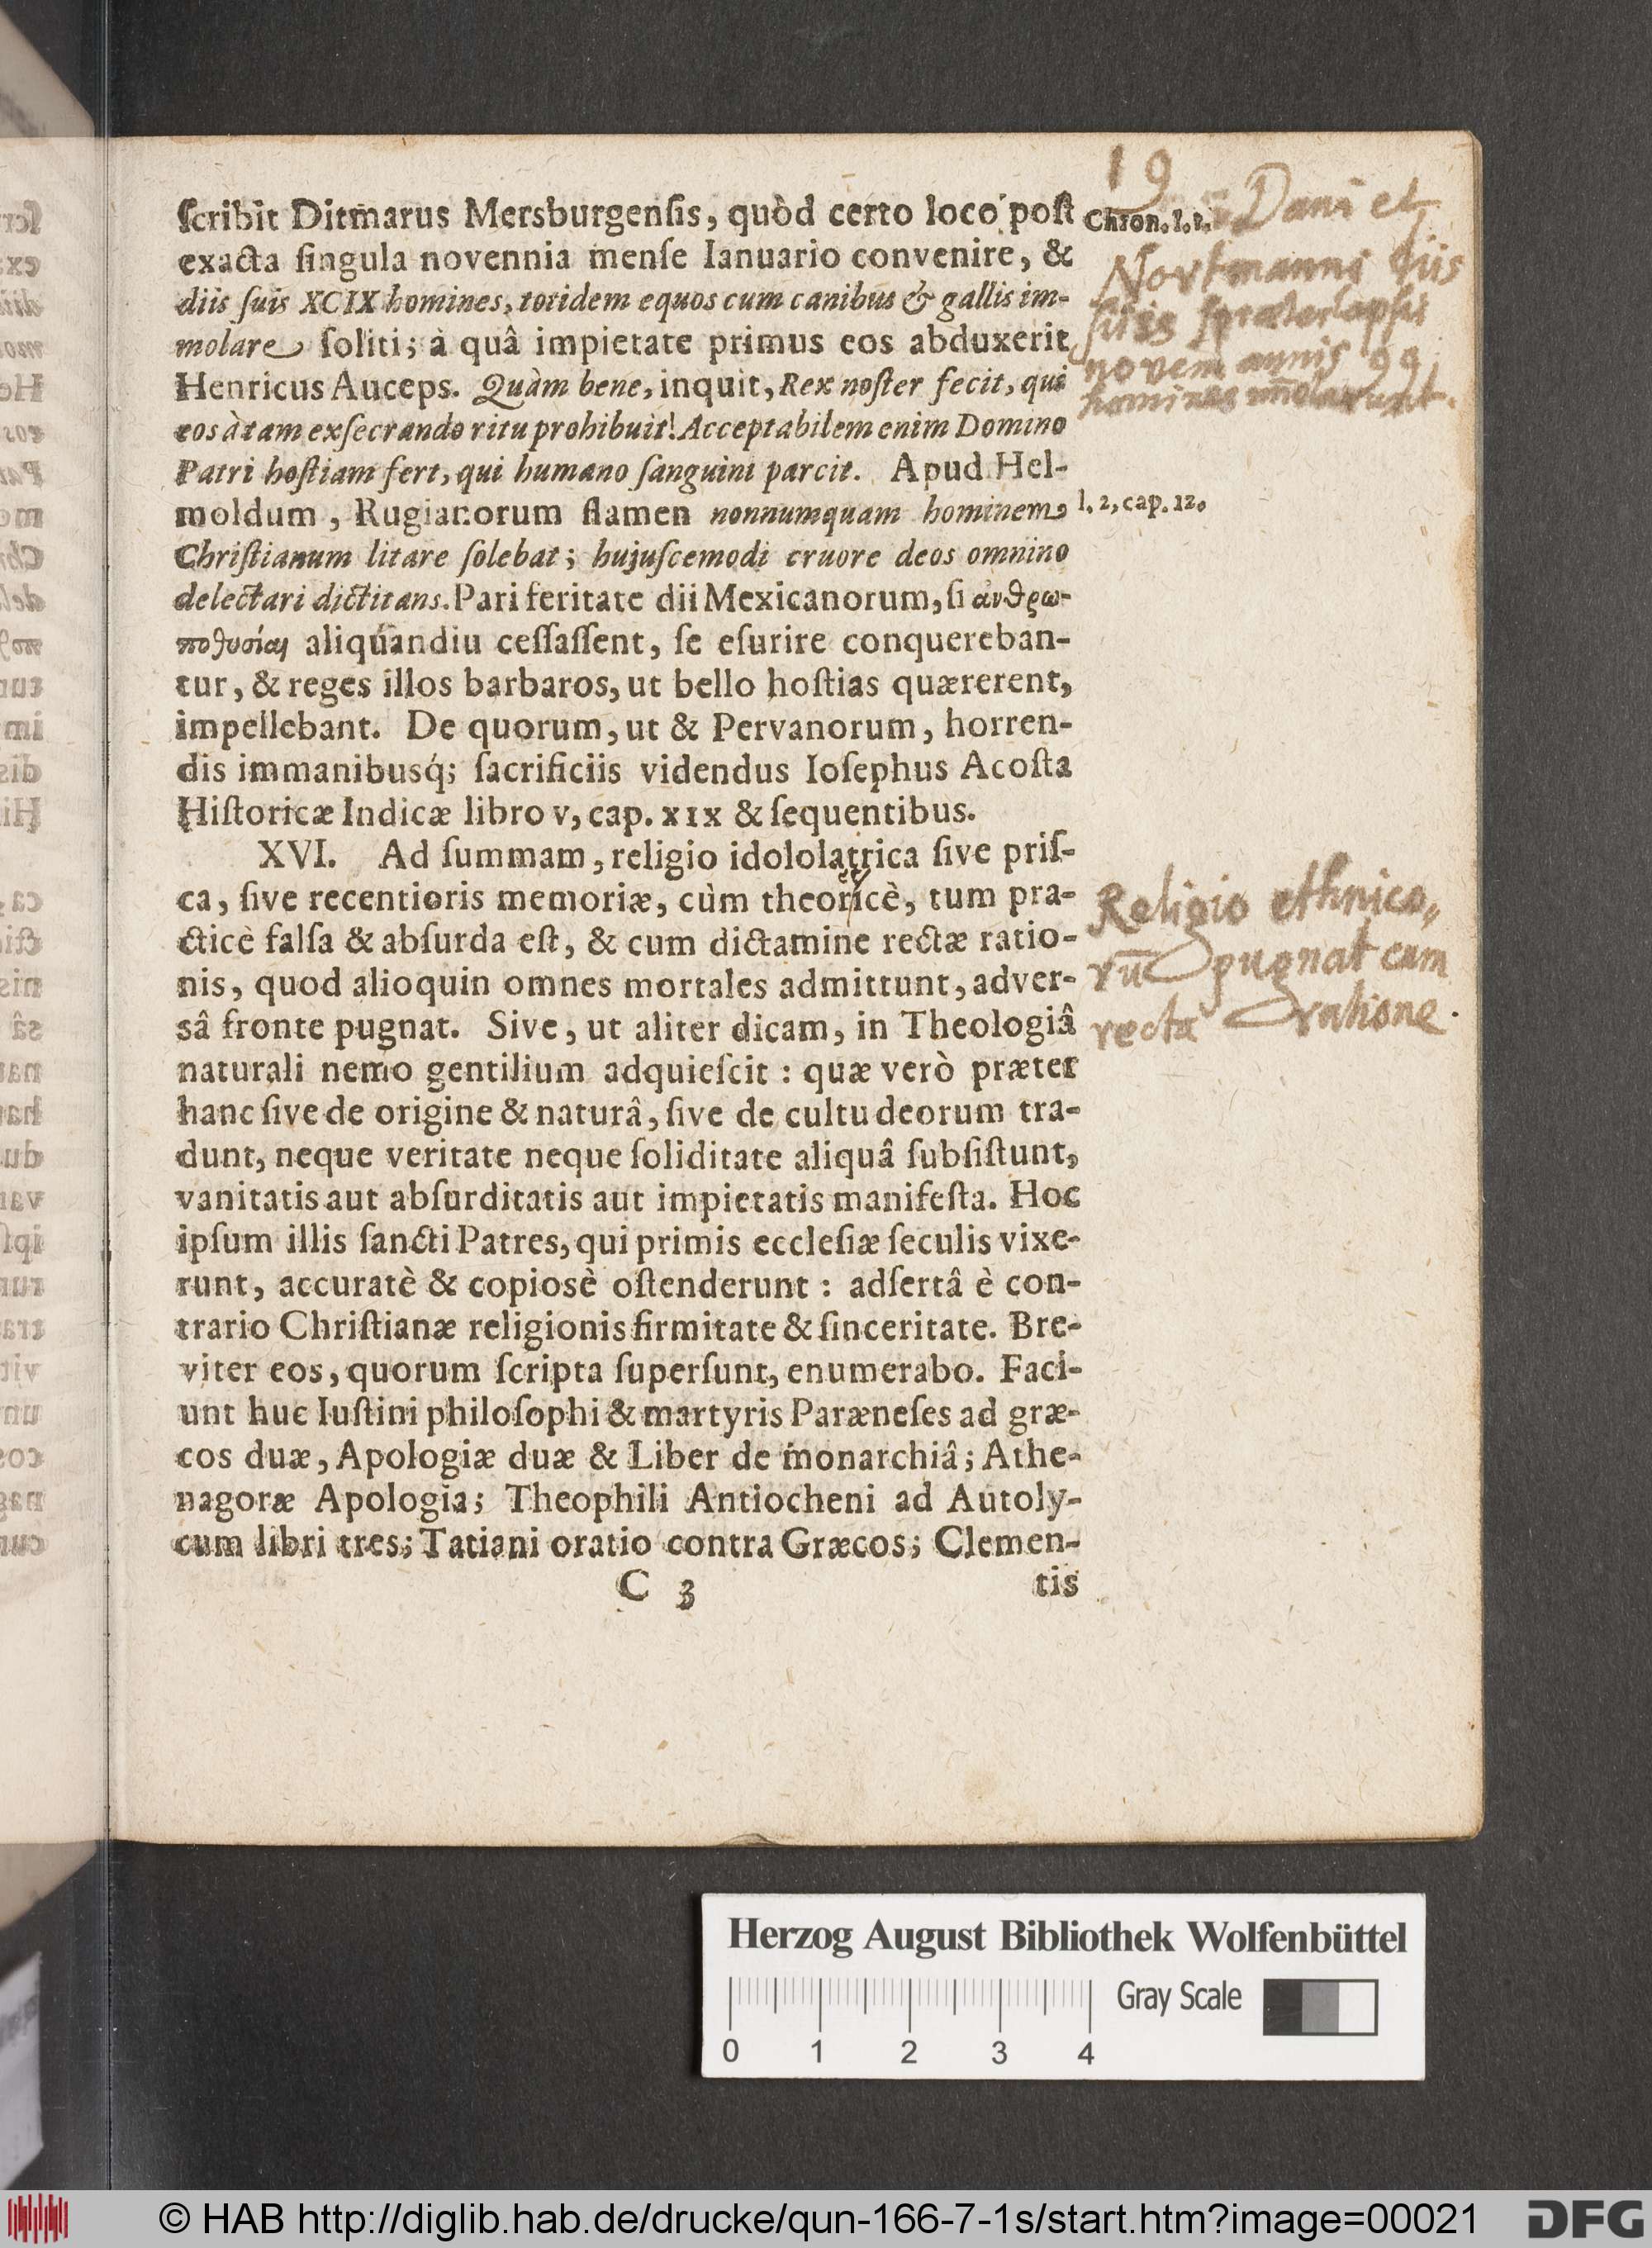 19
ſcribit Ditmarus Mersburgenſis, quòd certo loco poſt
exacta ſingula novennia menſe Ianuario convenire, &
diis ſuis XCIX homines, totidem equos cum canibus & gallis im-
molare ſoliti; à quâ impietate primus eos abduxerit
Henricus Auceps. Quàm bene, inquit, Rex noſter fecit, qui
eos à tam exſecrando ritu prohibuit! Acceptabilem enim Domino
Patri hoſtiam fert, qui humano ſanguini parcit. Apud Hel-
moldum, Rugianorum flamen nonnumquam hominem
Chriſtianum litare ſolebat; hujuſcemodi cruore deos omnino
delectari dictitans. Pari feritate dii Mexicanorum, ſi ἀνθρω-
ποθυσίαι aliquandiu ceſſaſſent, ſe eſurire conquereban-
tur, & reges illos barbaros, ut bello hoſtias quærerent,
impellebant. De quorum, ut & Pervanorum, horren-
dis immanibusq́; ſacrificiis videndus Ioſephus Acoſta
Hiſtoricæ Indicæ libro v, cap. XIX & ſequentibus.
XVI. Ad ſummam, religio idololatrica ſive priſ-
ca, ſive recentioris memoriæ, cùm theoricè, tum pra-
cticè falſa & abſurda eſt, & cum dictamine rectæ ratio-
nis, quod alioquin omnes mortales admittunt, adver-
sâ fronte pugnat. Sive, ut aliter dicam, in Theologiâ
naturali nemo gentilium adquieſcit : quæ verò præter
hanc ſive de origine & naturâ, ſive de cultu deorum tra-
dunt, neque veritate neque ſoliditate aliquâ ſubſiſtunt,
vanitatis aut abſurditatis aut impietatis manifeſta. Hoc
ipſum illis ſancti Patres, qui primis eccleſiæ ſeculis vixe-
runt, accuratè & copiosè oſtenderunt : adſertâ è con-
trario Chriſtianæ religionis firmitate & ſinceritate. Bre-
viter eos, quorum ſcripta ſuperſunt, enumerabo. Faci-
unt huc Iuſtini philoſophi & martyris Paræneſes ad græ-
cos duæ, Apologiæ duæ & Liber de monarchiâ; Athe-
nagoræ Apologia; Theophili Antiocheni ad Autoly-
cum libri tres; Tatiani oratio contra Græcos; Clemen-
C 3 tis
Chron. l. 1.
Dani et
Nortmanni diis
suis præterlapsis
novem annis 99
homines im̄olarunt.
l. 2, cap. 12.
Religio ethnico„
rū pugnat cum
recta ratione.
Herzog August Bibliothek Wolfenbüttel
Gray Scale
0 1 2 3 4
© HAB http://diglib.hab.de/drucke/qun-166-7-1s/start.htm?image=00021
DFG